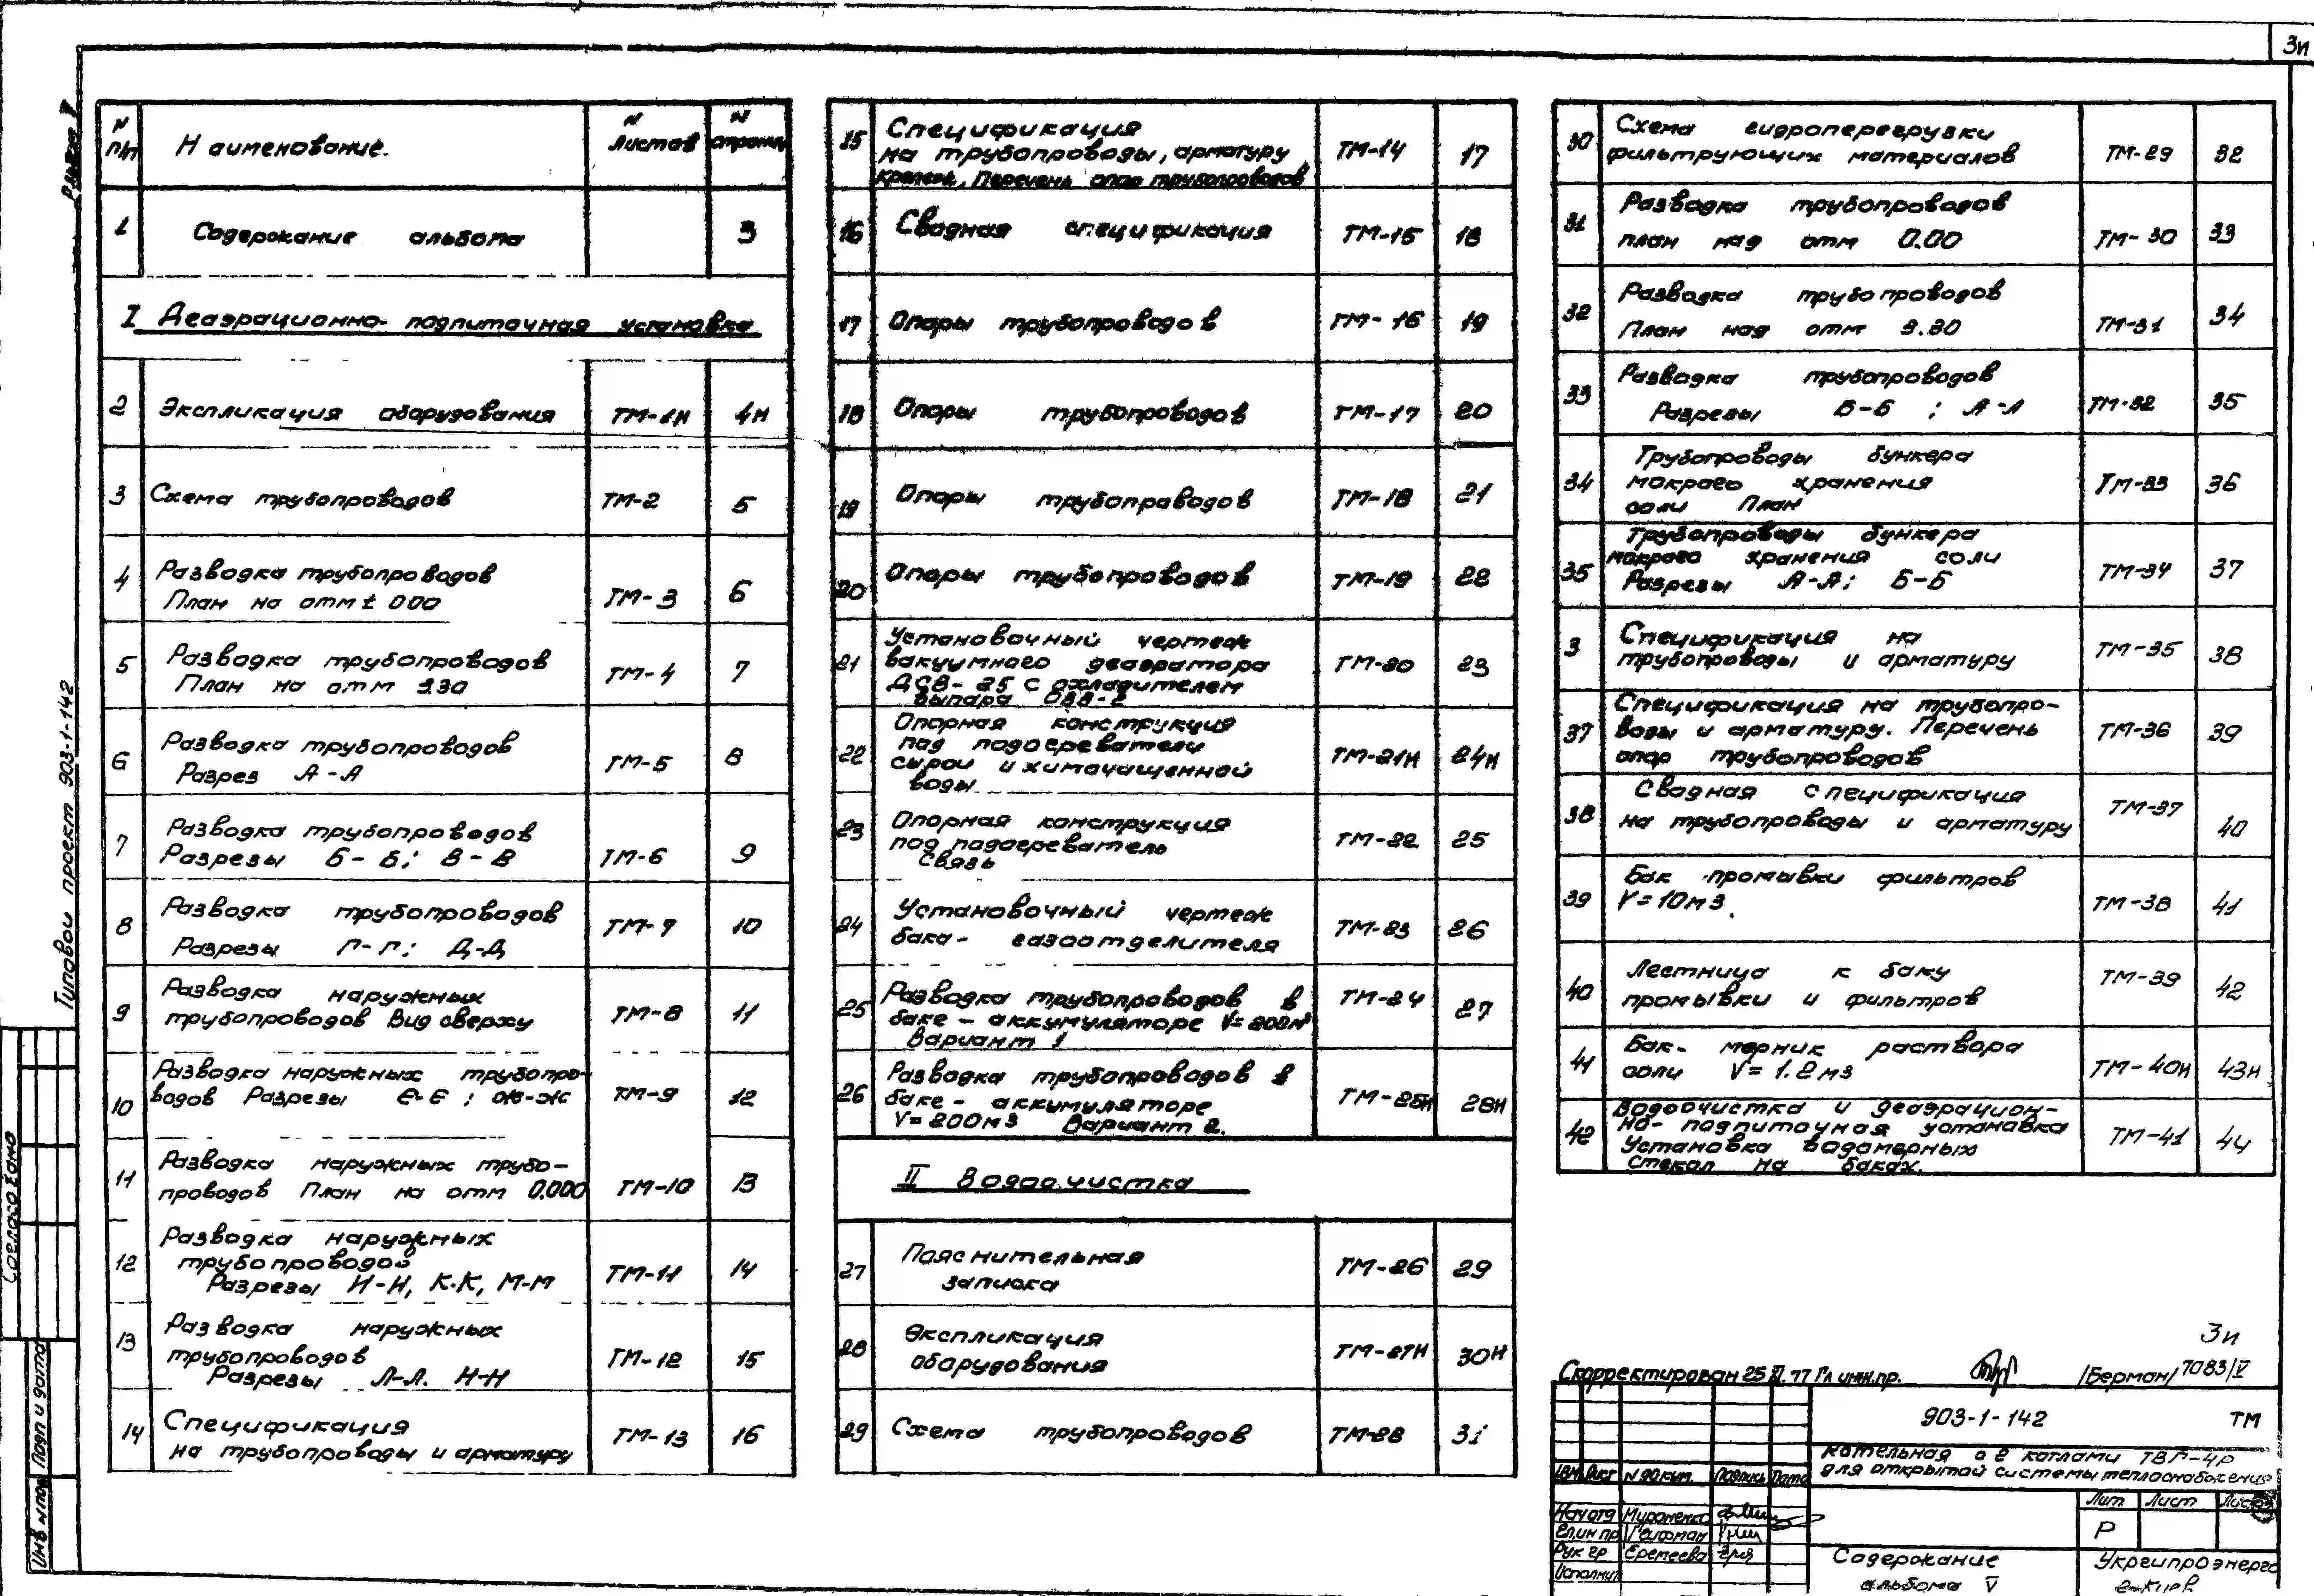 3и
Альбом V
Типовой проект 903-1-142
Согласовано
Подп и дата
Инв № под
N п/п
Наименование.
N листов
N страниц
1 Содержание альбома 3
I Деаэрационно-подпиточная установка
2 Экспликация оборудования ТМ-1И 4И
3 Схема трубопроводов ТМ-2 5
4 Разводка трубопроводов
План на отм ± 000 ТМ-3 6
5 Разводка трубопроводов
План на отм 3.30 ТМ-4 7
6 Разводка трубопроводов
Разрез А-А ТМ-5 8
7 Разводка трубопроводов
Разрезы Б-Б; В-В ТМ-6 9
8 Разводка трубопроводов
Разрезы Г-Г; Д-Д ТМ-7 10
9 Разводка наружных
трубопроводов Вид сверху ТМ-8 11
10 Разводка наружных трубопро-
водов Разрезы Е-Е; Ж-Ж ТМ-9 12
11 Разводка наружных трубо-
проводов План на отм 0.000 ТМ-10 13
12 Разводка наружных
трубопроводов
Разрезы И-И, К-К, М-М ТМ-11 14
13 Разводка наружных
трубопроводов
Разрезы Л-Л. Н-Н ТМ-12 15
14 Спецификация
на трубопроводы и арматуру ТМ-13 16
15 Спецификация
на трубопроводы, арматуру
крепеж. Перечень опор трубопроводов ТМ-14 17
16 Сводная спецификация ТМ-15 18
17 Опоры трубопроводов ТМ-16 19
18 Опоры трубопроводов ТМ-17 20
19 Опоры трубопроводов ТМ-18 21
20 Опоры трубопроводов ТМ-19 22
21 Установочный чертеж
вакуумного деаэратора
ДСВ-25 с охладителем
выпара ОВВ-2 ТМ-20 23
22 Опорная конструкция
под подогреватели
сырой и химочищенной
воды ТМ-21И 24И
23 Опорная конструкция
под подогреватель
Связь ТМ-22 25
24 Установочный чертеж
бака-газоотделителя ТМ-23 26
25 Разводка трубопроводов в
баке-аккумуляторе V=200м³
Вариант 1 ТМ-24 27
26 Разводка трубопроводов в
баке-аккумуляторе
V=200м3 Вариант 2. ТМ-25И 28И
II Водоочистка
27 Пояснительная
записка ТМ-26 29
28 Экспликация
оборудования ТМ-27И 30И
29 Схема трубопроводов ТМ-28 31
30 Схема гидроперегрузки
фильтрующих материалов ТМ-29 32
31 Разводка трубопроводов
план над отм 0.00 ТМ-30 33
32 Разводка трубопроводов
План над отм 3.30 ТМ-31 34
33 Разводка трубопроводов
Разрезы Б-Б; А-А ТМ-32 35
34 Трубопроводы бункера
мокрого хранения
соли План ТМ-33 36
35 Трубопроводы бункера
мокрого хранения соли
Разрезы А-А; Б-Б ТМ-34 37
3 Спецификация на
трубопроводы и арматуру ТМ-35 38
37 Спецификация на трубопро-
воды и арматуру. Перечень
опор трубопроводов ТМ-36 39
38 Сводная спецификация
на трубопроводы и арматуру ТМ-37 40
39 Бак промывки фильтров
V=10м3. ТМ-38 41
40 Лестница к баку
промывки и фильтров ТМ-39 42
41 Бак-мерник раствора
соли V=1.2м3 ТМ-40И 43И
42 Водоочистка и деаэрацион-
но-подпиточная установка
Установка водомерных
стекол на баках. ТМ-41 44
3и
Скорректирован 25 77 Гл инж.пр. /Берман/ 7083/V
903-1-142 ТМ
Котельная с 2 котлами ТВГ-4р
для открытой системы теплоснабжения
Изм Лист N докум. Подпись Дата
Лит Лист Листов
Нач отд Мироненко
Гл.инж пр Гейфман
Р
Рук гр Еремеева
Исполнит
Содержание
альбома V
Укргипроэнерго
г.Киев